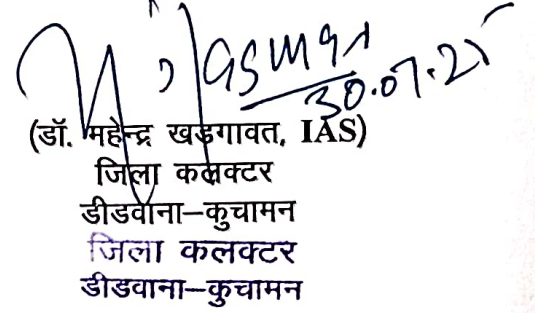 30.07.25
(डॉ. महेन्द्र खड़गावत, IAS)
जिला कलक्टर
डीडवाना–कुचामन
जिला कलक्टर
डीडवाना–कुचामन